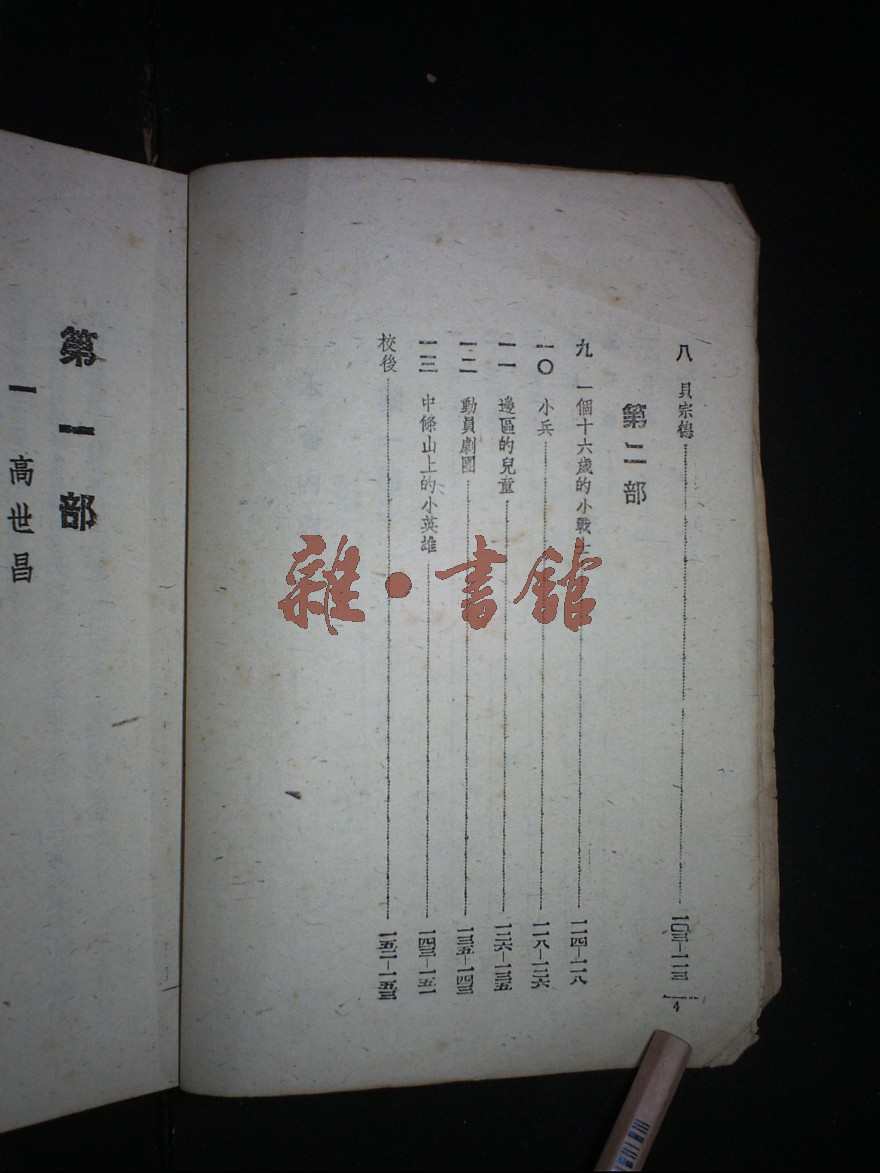 八 貝宗德 一〇三—一一三
第二部
九 一個十六歲的小戰士 一一四—一一八
一〇 小兵 一一八—一二六
一一 邊區的兒童 一二六—一三五
一二 動員劇團 一三五—一四三
一三 中條山上的小英雄 一四三—一五一
校後 一五二—一五三
4
第一部
一 高世昌
雜·書館